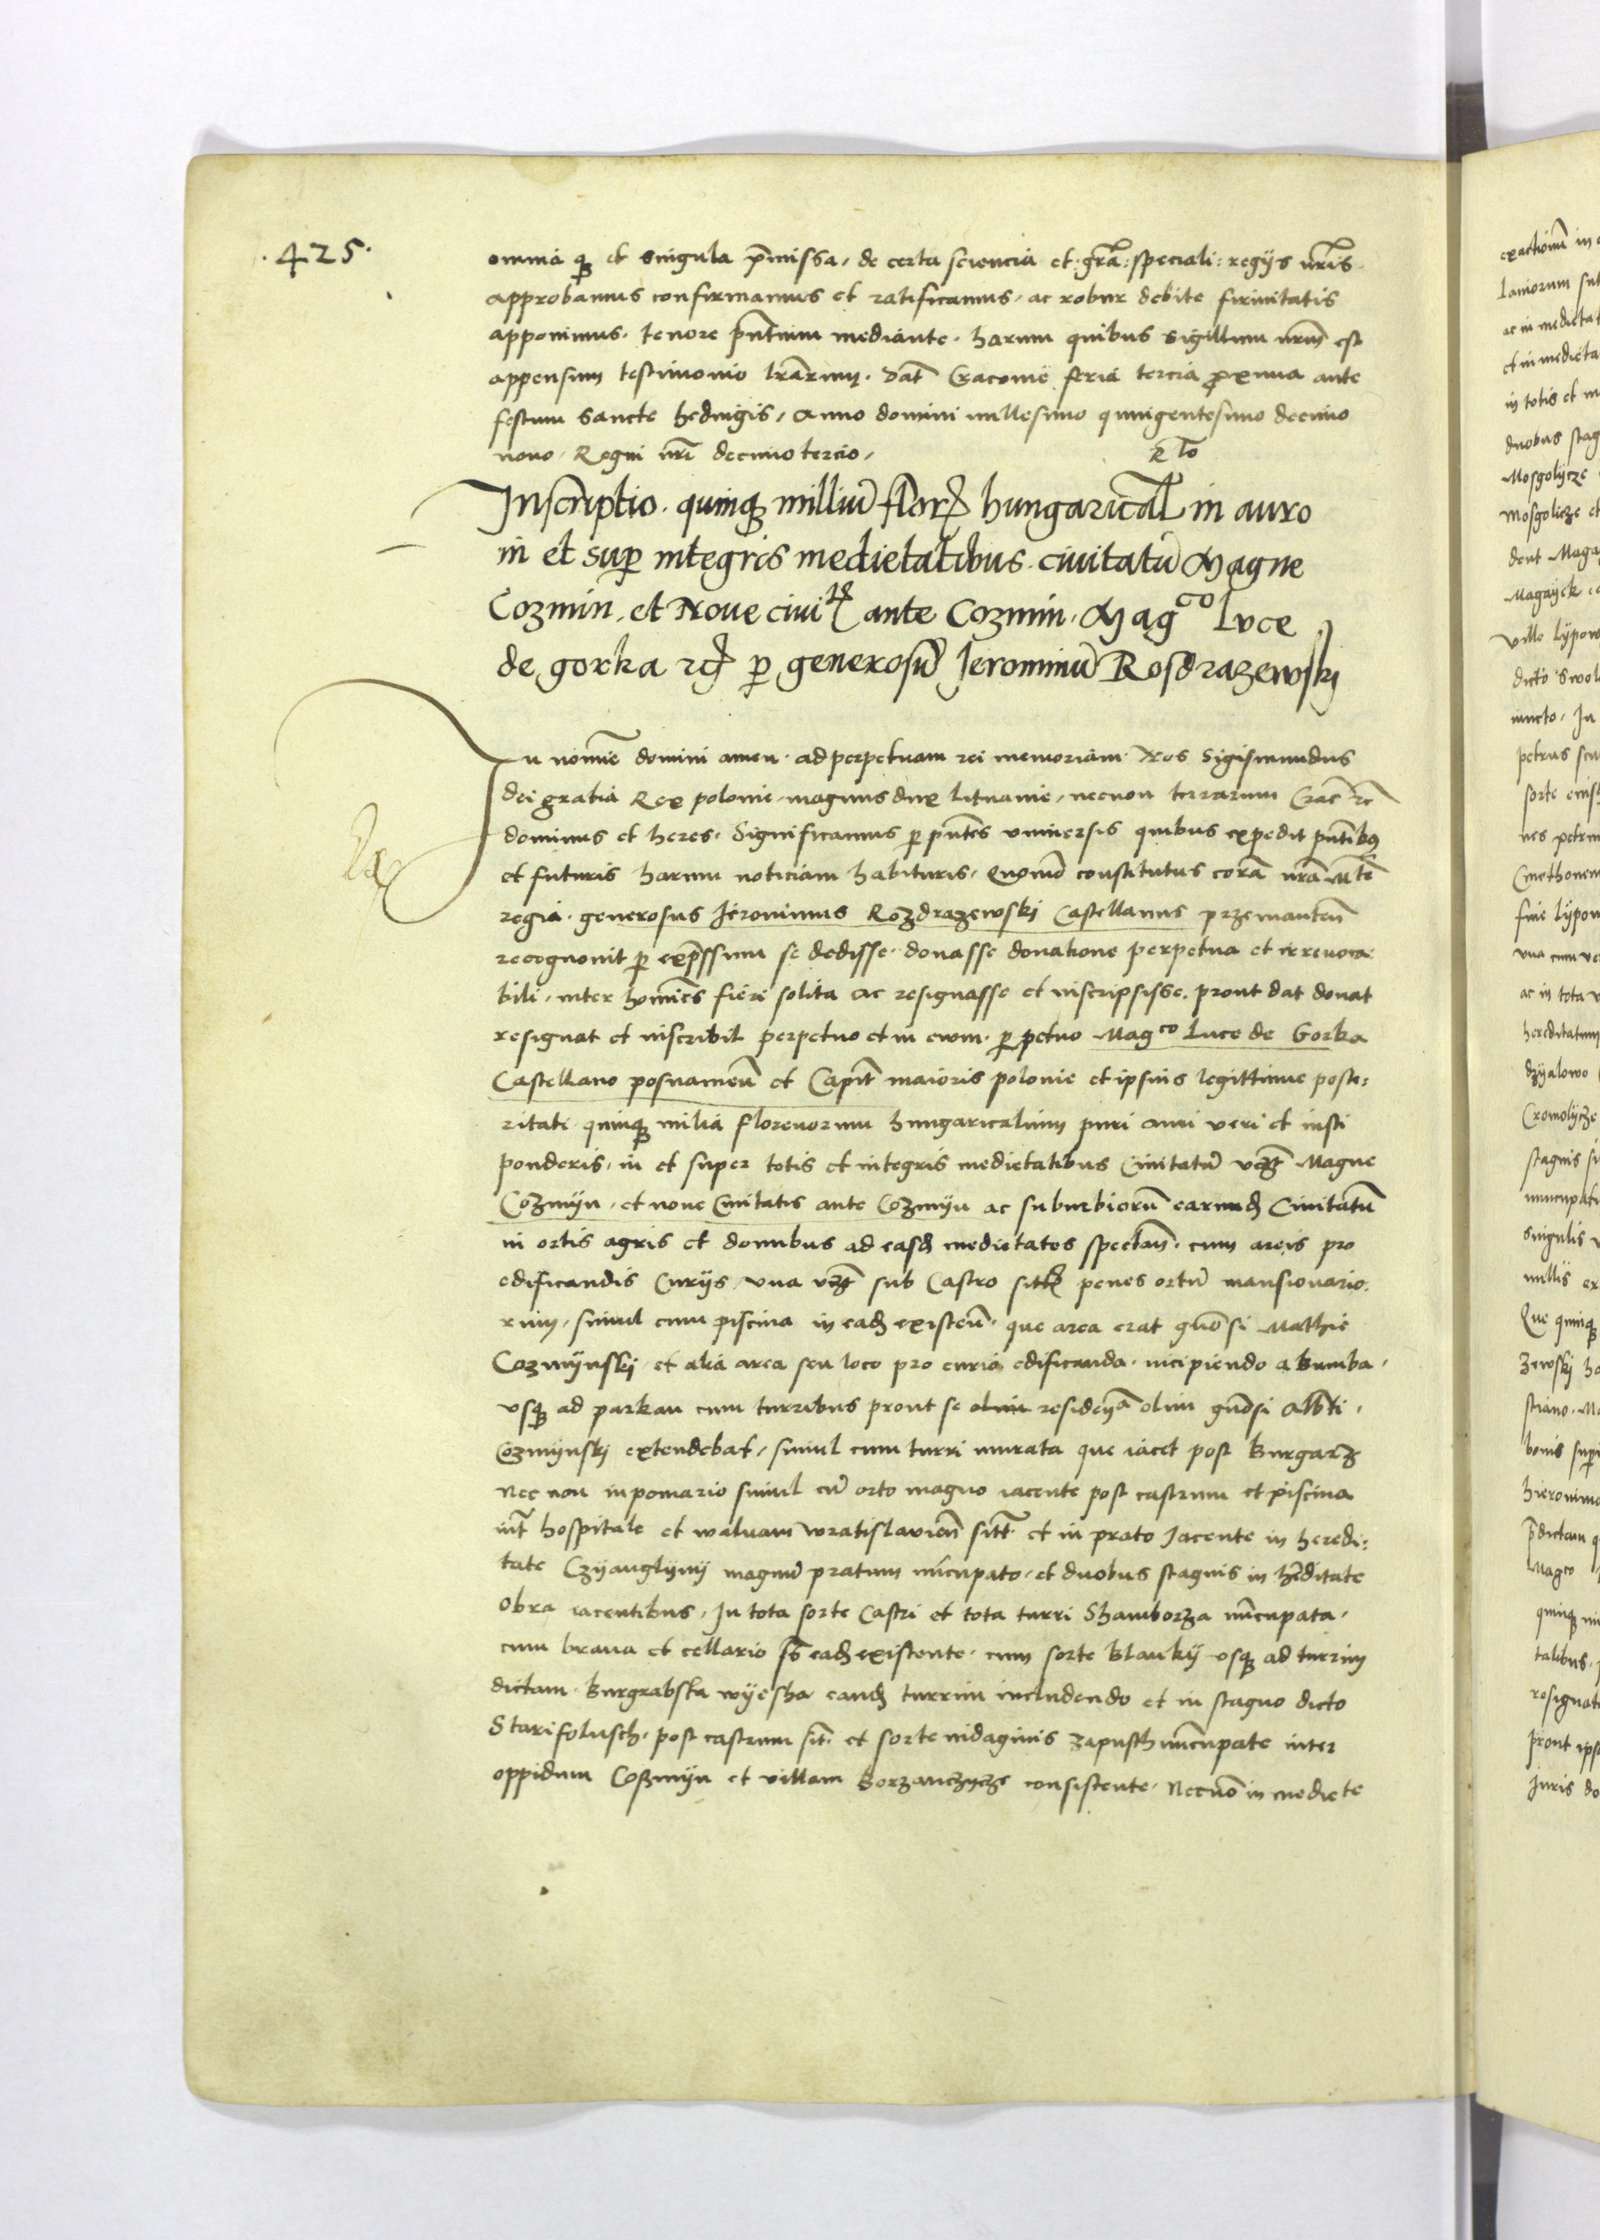 .425.
omnia q₃ et singula p̄missa, de certa sciencia et gr̄a: speciali: regijs nr̄is
approbamus confirmamus et ratificamus, ac robur debite firmitatis
apponimus, tenore pn̄tium mediante. harum quibus sigillum nr̄m est
appensum testimonio lr̄arum. Dat̄ Cracovie feria tercia proxima ante
festum sancte hedvigis, Anno domini millesimo quingentesimo decimo
nono, Regni nr̄i decimotercio,
Rt̄o
Inscriptio quinq₃ milliū flor₄ hungarical̄ in auro
in et sup integris medietatibus civitatū Magne
Cozmin. et Nove civi^t₄ ante Cozmin. Mag^co Luce
de gorka rc₄ p generosū Jeronimū Rosdrazewskij
In noīe domini amen. ad perpetuam rei memoriam. Nos Sigismundus
dei gratia Rex polonie, magnus dux lituanie, necnon terrarum Crac̄ rc̄
dominus et heres. Significamus p pn̄tes vniversis quibus expedit pn̄tibus
et futuris harum noticiam habituris. Quomō constitutus corā nr̄a Mt̄e
regia. generosus Jeronimus Rozdrazewskj Castellanus przemanten̄
recognovit p exp̄ssum se dedisse. donasse donatione perpetua et irrevoca
bili, inter homīes fieri solita ac resignasse et inscripsisse, prout dat donat
resignat et inscribit perpetuo et in ewm. p petuo Mag^co Luce de Gorka
Castellano posnanien̄ et Capit̄ maioris polonie et ipsius legittime poste:
ritati quinq₃ milia florenorum hungaricalium puri auri veri et iusti
ponderis, in et super totis et integris medietatibus Civitatū vz̄ Magne
Cozmijn, et nove Civitatis ante Cozmijn ac suburbiorū earund̄ Civitatū
in ortis agris et domibus ad easd̄ medietates spectan̄. cum areis pro
edificandis Curijs, vna vz̄ sub Castro sitt̄ penes ortū mansionario.
rum, simul cum piscina in ead̄ existen̄. que area erat gn̄osi Mathie
Cozmijnskj, et alia area seu loco pro curia edificanda. incipiendo a Bumba,
vsq₃ ad parkan cum turribus prout se olim residen^a olim gn̄osi Alb̄ti,
Cozmijnskj extendebat, simul cum turri murata que iacet post Burgarz
nec non in pomario simul cū orto magno iacente post castrum et piscina
int̄ hospitale et walvam wratislavien̄ sitt̄ et in prato Jacente in heredi:
tate Czijanglijnij magnū pratum nūcupato, et duobus stagnis in hr̄ditate
Obra iacentibus, In tota sorte Castri et tota turri Shamborza nūcupata,
cum brava et cellario sb̄ ead̄ existente. cum sorte Blankij vsq₃ ad turrim
dictam. Burgrabska wijesha eand̄ turrim includendo et in stagno dicto
Starifolusch, post castrum sit̄. et sorte indaginis zapusth nūcupate inter
oppidum Coßmijn et villam Borzanczycze consistente. Necnō in mediete